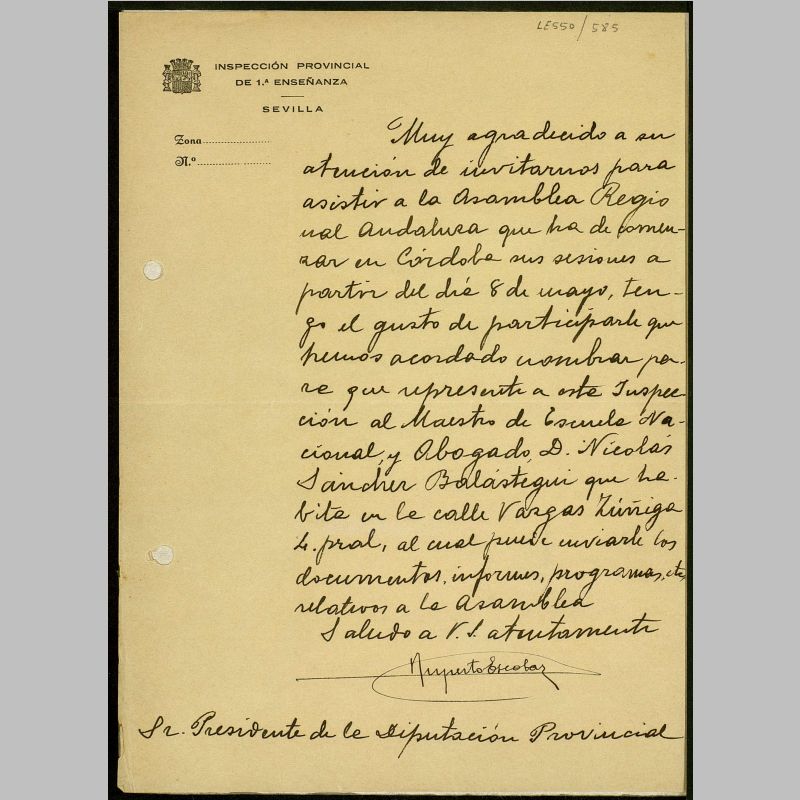 LE550/585
INSPECCIÓN PROVINCIAL
DE 1.ª ENSEÑANZA
SEVILLA
Zona
N.º
Muy agradecido a su
atención de invitarnos para
asistir a la Asamblea Regio
nal Andaluza que ha de comen-
zar en Córdoba sus sesiones a
partir del día 8 de mayo, ten-
go el gusto de participarle que
hemos acordado nombrar pa-
ra que represente a esta Inspec
ción al Maestro de Escuela Na-
cional, y Abogado, D. Nicolás
Sánchez Balástegui que ha-
bita en la calle Vargas Zúñiga
4. pral, al cual puede enviarle los
documentos, informes, programas, etc,
relativos a la Asamblea
Saludo a V.S. atentamente
Ruperto Escobar
Sr. Presidente de la Diputación Provincial